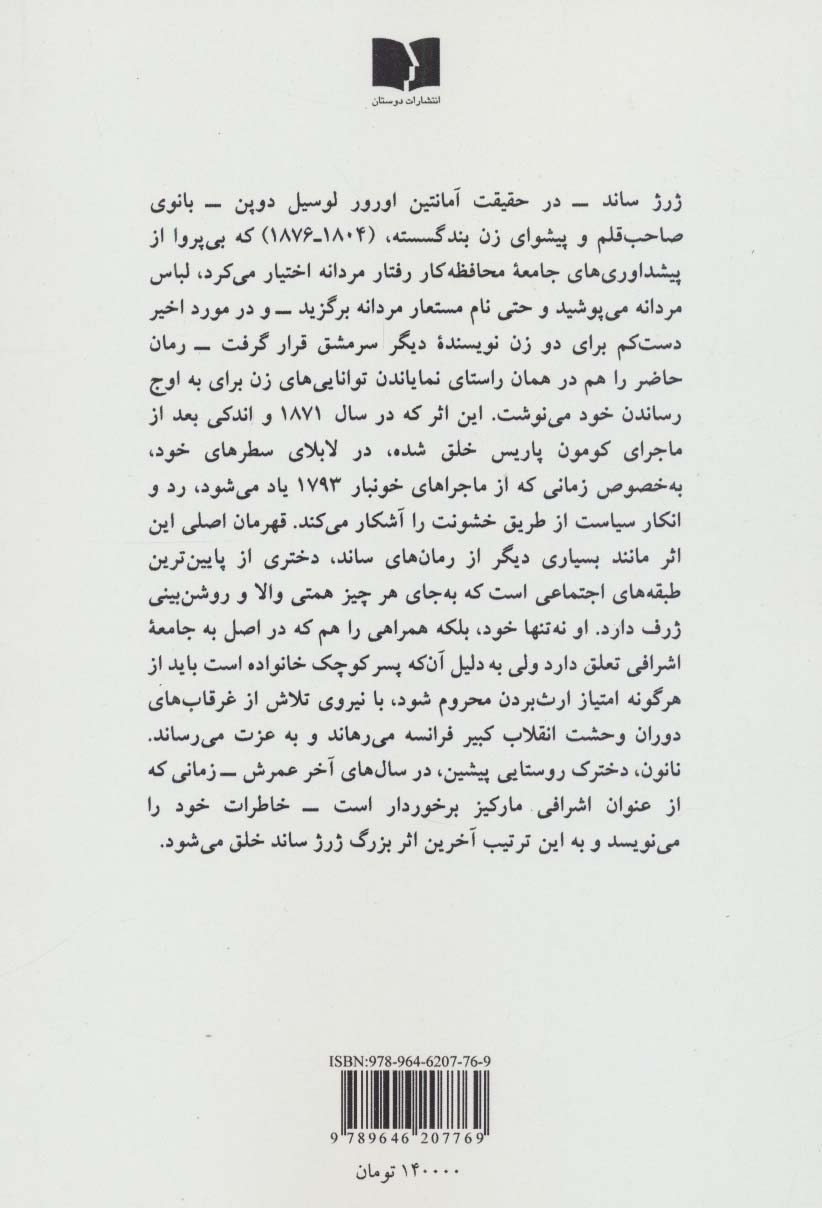 انتشارات دوستان
ژرژ ساند ــ در حقیقت آمانتین اورور لوسیل دوپن ــ بانوی
صاحب‌قلم و پیشوای زن بندگسسته، (۱۸۰۴-۱۸۷۶) که بی‌پروا از
پیشداوری‌های جامعهٔ محافظه‌کار رفتار مردانه اختیار می‌کرد، لباس
مردانه می‌پوشید و حتی نام مستعار مردانه برگزید ــ و در مورد اخیر
دست‌کم برای دو زن نویسندهٔ دیگر سرمشق قرار گرفت ــ رمان
حاضر را هم در همان راستای نمایاندن توانایی‌های زن برای به اوج
رساندن خود می‌نوشت. این اثر که در سال ۱۸۷۱ و اندکی بعد از
ماجرای کومون پاریس خلق شده، در لابلای سطرهای خود،
به‌خصوص زمانی که از ماجراهای خونبار ۱۷۹۳ یاد می‌شود، رد و
انکار سیاست از طریق خشونت را آشکار می‌کند. قهرمان اصلی این
اثر مانند بسیاری دیگر از رمان‌های ساند، دختری از پایین‌ترین
طبقه‌های اجتماعی است که به‌جای هر چیز همتی والا و روشن‌بینی
ژرف دارد. او نه‌تنها خود، بلکه همراهی را هم که در اصل به جامعهٔ
اشرافی تعلق دارد ولی به دلیل آن‌که پسر کوچک خانواده است باید از
هرگونه امتیاز ارث‌بردن محروم شود، با نیروی تلاش از غرقاب‌های
دوران وحشت انقلاب کبیر فرانسه می‌رهاند و به عزت می‌رساند.
نانون، دخترک روستایی پیشین، در سال‌های آخر عمرش ــ زمانی که
از عنوان اشرافی مارکیز برخوردار است ــ خاطرات خود را
می‌نویسد و به این ترتیب آخرین اثر بزرگ ژرژ ساند خلق می‌شود.
ISBN:978-964-6207-76-9
9 789646 207769
۱۴۰۰۰۰ تومان